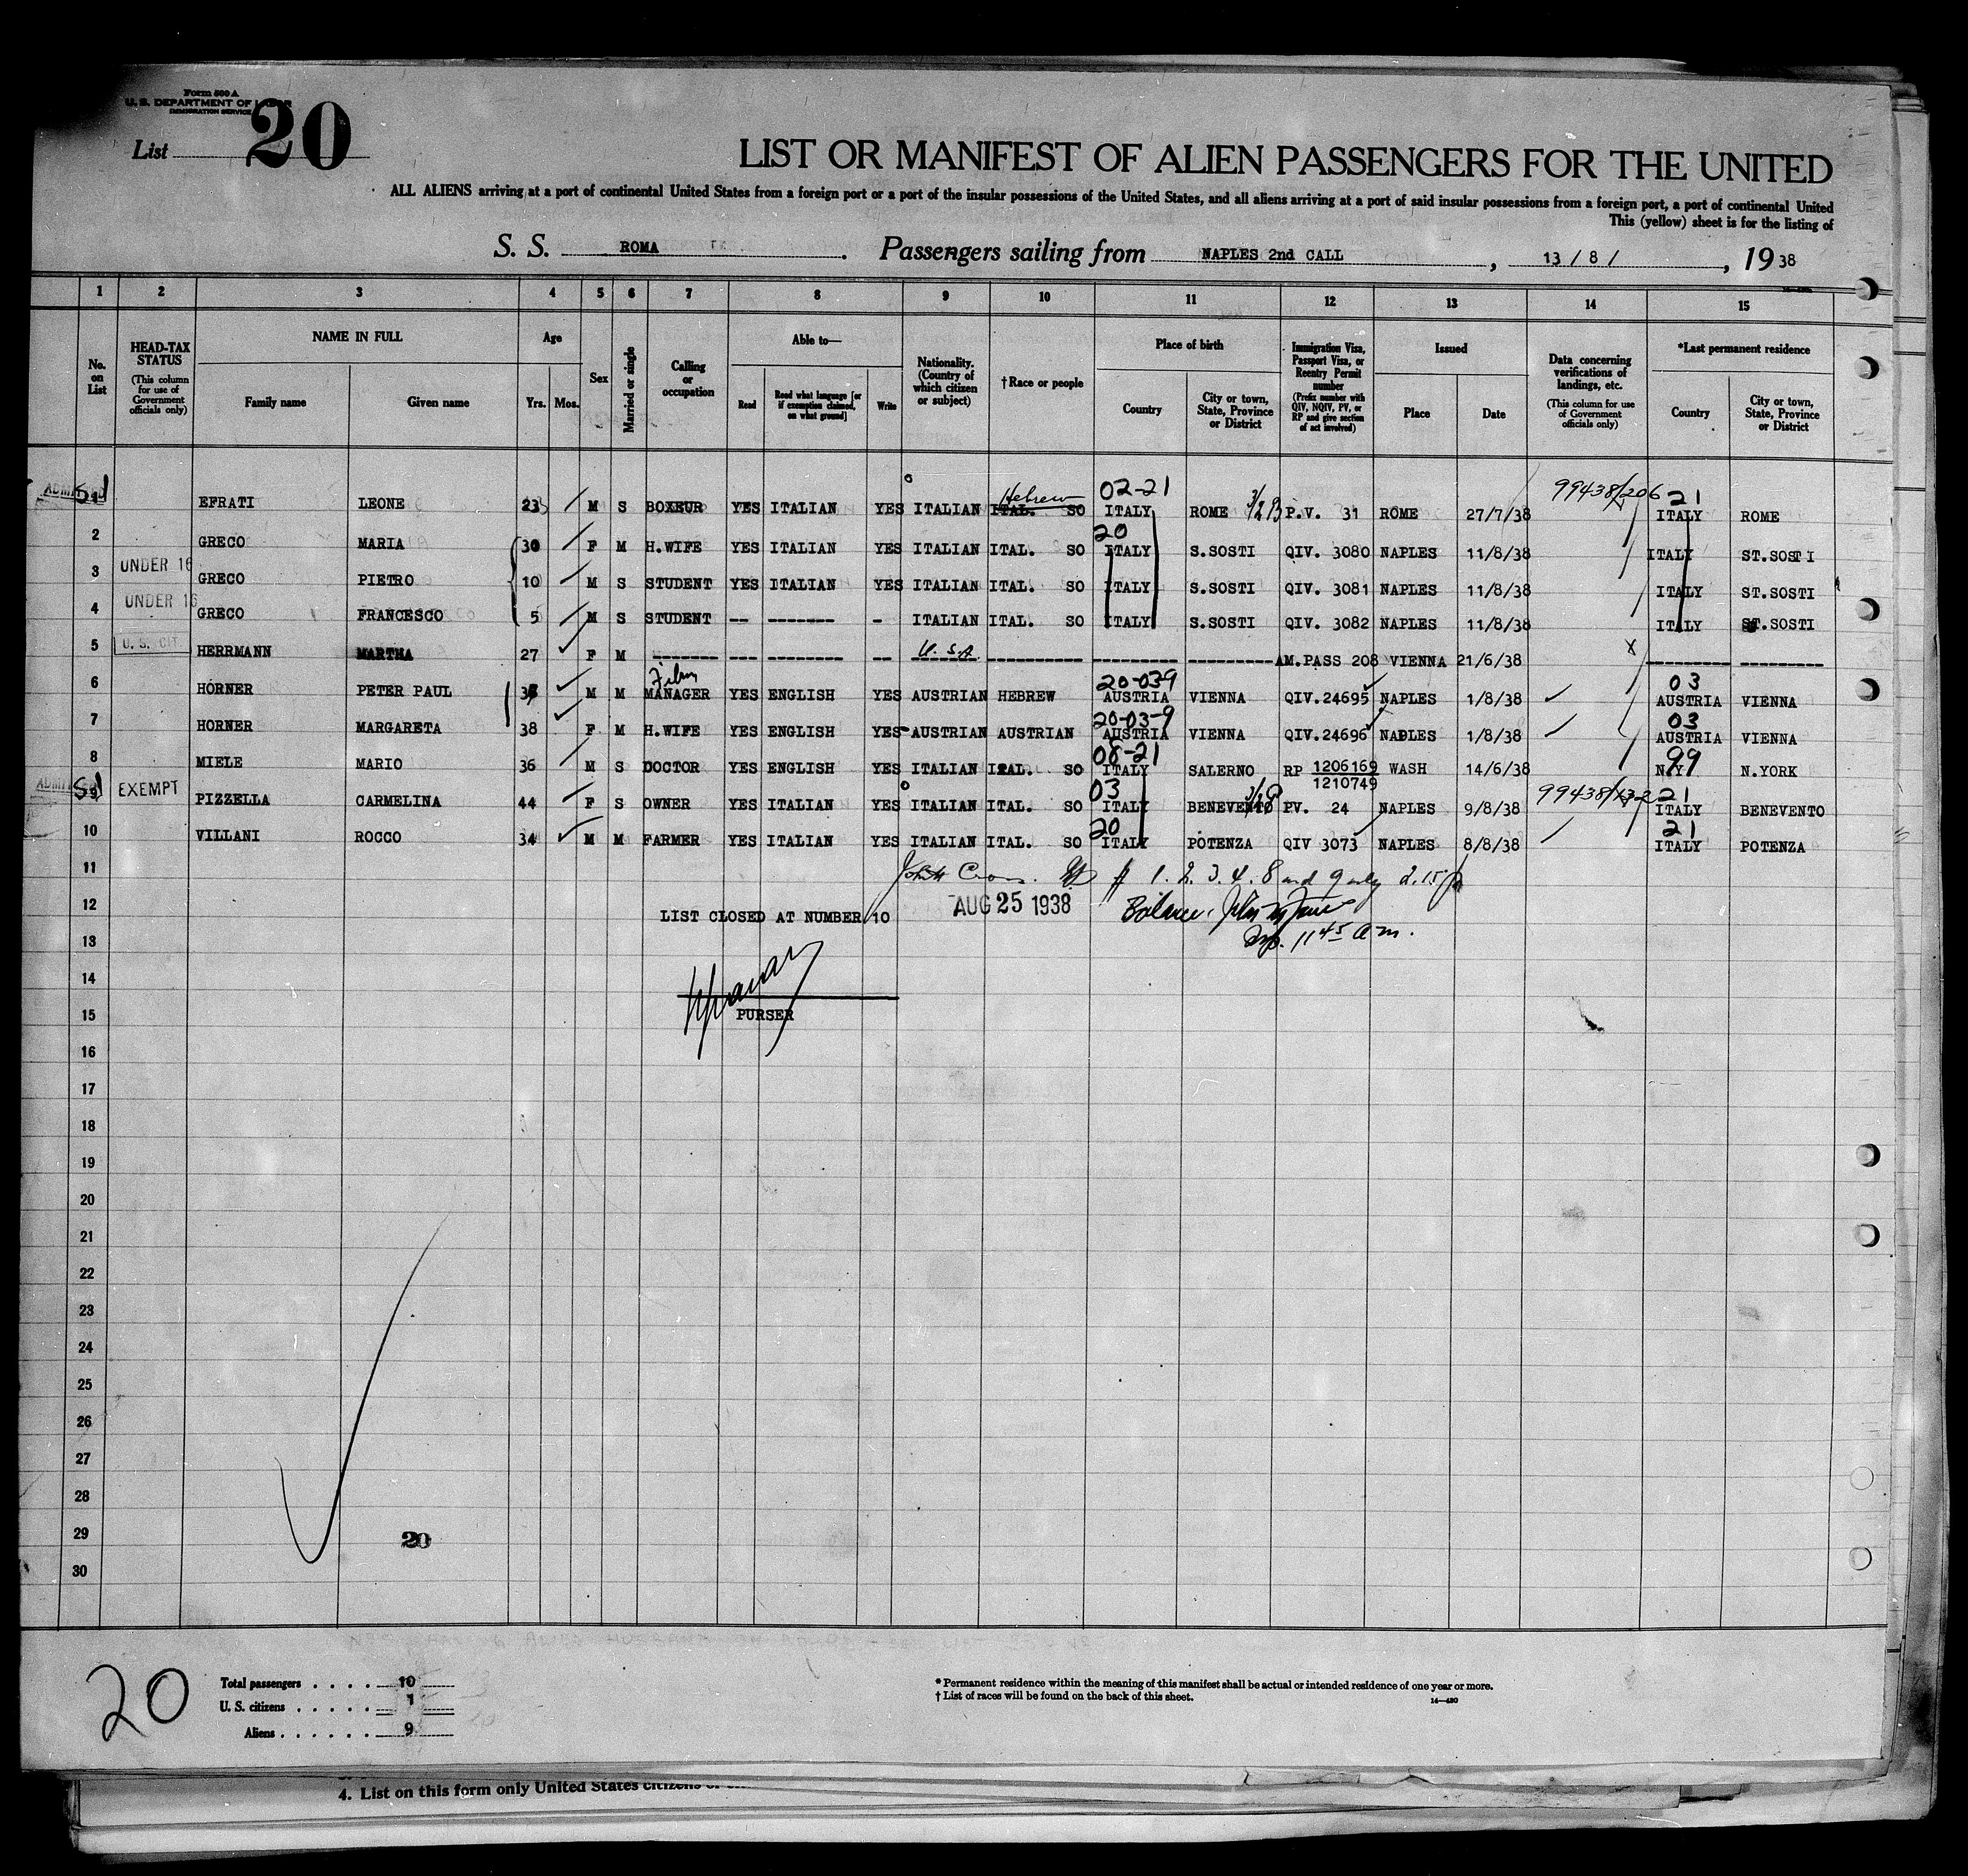 Form 500 A
U. S. DEPARTMENT OF LABOR
IMMIGRATION SERVICE
List 20
LIST OR MANIFEST OF ALIEN PASSENGERS FOR THE UNITED
ALL ALIENS arriving at a port of continental United States from a foreign port or a port of the insular possessions of the United States, and all aliens arriving at a port of said insular possessions from a foreign port, a port of continental United
This (yellow) sheet is for the listing of
S. S. ROMA Passengers sailing from NAPLES 2nd CALL, 13/8/, 1938
1 2 3 4 5 6 7 8 9 10 11 12 13 14 15
No. on List
HEAD-TAX STATUS (This column for use of Government officials only)
NAME IN FULL
Family name Given name
Age
Yrs. Mos.
Sex
Married or single
Calling or occupation
Able to—
Read Read what language [or if exemption claimed, on what ground] Write
Nationality. (Country of which citizen or subject)
†Race or people
Place of birth
Country City or town, State, Province or District
Immigration Visa, Passport Visa, or Reentry Permit number (Prefix number with QIV, NQIV, PV, or RP and give section of act involved)
Issued
Place Date
Data concerning verifications of landings, etc. (This column for use of Government officials only)
*Last permanent residence
Country City or town, State, Province or District
Hebrew 02-21 99438/206 21
ADMITTED S1 EFRATI LEONE 23 M S BOXEUR YES ITALIAN YES ITALIAN ITAL. SO ITALY ROME 3/2 B P.V. 31 ROME 27/7/38 ITALY ROME
20
2 GRECO MARIA 30 F M H.WIFE YES ITALIAN YES ITALIAN ITAL. SO ITALY S.SOSTI QIV. 3080 NAPLES 11/8/38 ITALY ST.SOSTI
3 UNDER 16 GRECO PIETRO 10 M S STUDENT YES ITALIAN YES ITALIAN ITAL. SO ITALY S.SOSTI QIV. 3081 NAPLES 11/8/38 ITALY ST.SOSTI
4 UNDER 16 GRECO FRANCESCO 5 M S STUDENT -- ------- - ITALIAN ITAL. SO ITALY S.SOSTI QIV. 3082 NAPLES 11/8/38 ITALY ST.SOSTI
5 U. S. CIT HERRMANN MARTHA 27 F M -------- -- ------- -- U.S.A. ---------- --------- ---------- AM.PASS 208 VIENNA 21/6/38 X --------- ---------
Film 20-039 03
6 HORNER PETER PAUL M M MANAGER YES ENGLISH YES AUSTRIAN HEBREW AUSTRIA VIENNA QIV.24695 NAPLES 1/8/38 AUSTRIA VIENNA
20-03-9 03
7 HORNER MARGARETA 38 F M H.WIFE YES ENGLISH YES AUSTRIAN AUSTRIAN AUSTRIA VIENNA QIV.24696 NAPLES 1/8/38 AUSTRIA VIENNA
08-21 99
8 MIELE MARIO 36 M S DOCTOR YES ENGLISH YES ITALIAN ITAL. SO ITALY SALERNO RP 1206169 1210749 WASH 14/6/38 N.Y N.YORK
03 99438/132 21
ADMITTED S1 9 EXEMPT PIZZELLA CARMELINA 44 F S OWNER YES ITALIAN YES ITALIAN ITAL. SO ITALY BENEVENTO PV. 24 NAPLES 9/8/38 ITALY BENEVENTO
20 21
10 VILLANI ROCCO 34 M M FARMER YES ITALIAN YES ITALIAN ITAL. SO ITALY POTENZA QIV 3073 NAPLES 8/8/38 ITALY POTENZA
11 # 1. 2. 3. 4. 8 and 9 only 2.15 p
12 LIST CLOSED AT NUMBER 10 AUG 25 1938 Balance
13 Insp. 11 45 a.m.
14
15 PURSER
16
17
18
19
20
21
22
23
24
25
26
27
28
29 20
30
20
Total passengers . . . . . 10
U. S. citizens . . . . . . 1
Aliens . . . . . . . 9
* Permanent residence within the meaning of this manifest shall be actual or intended residence of one year or more.
† List of races will be found on the back of this sheet. 14—430
4. List on this form only United States citizens